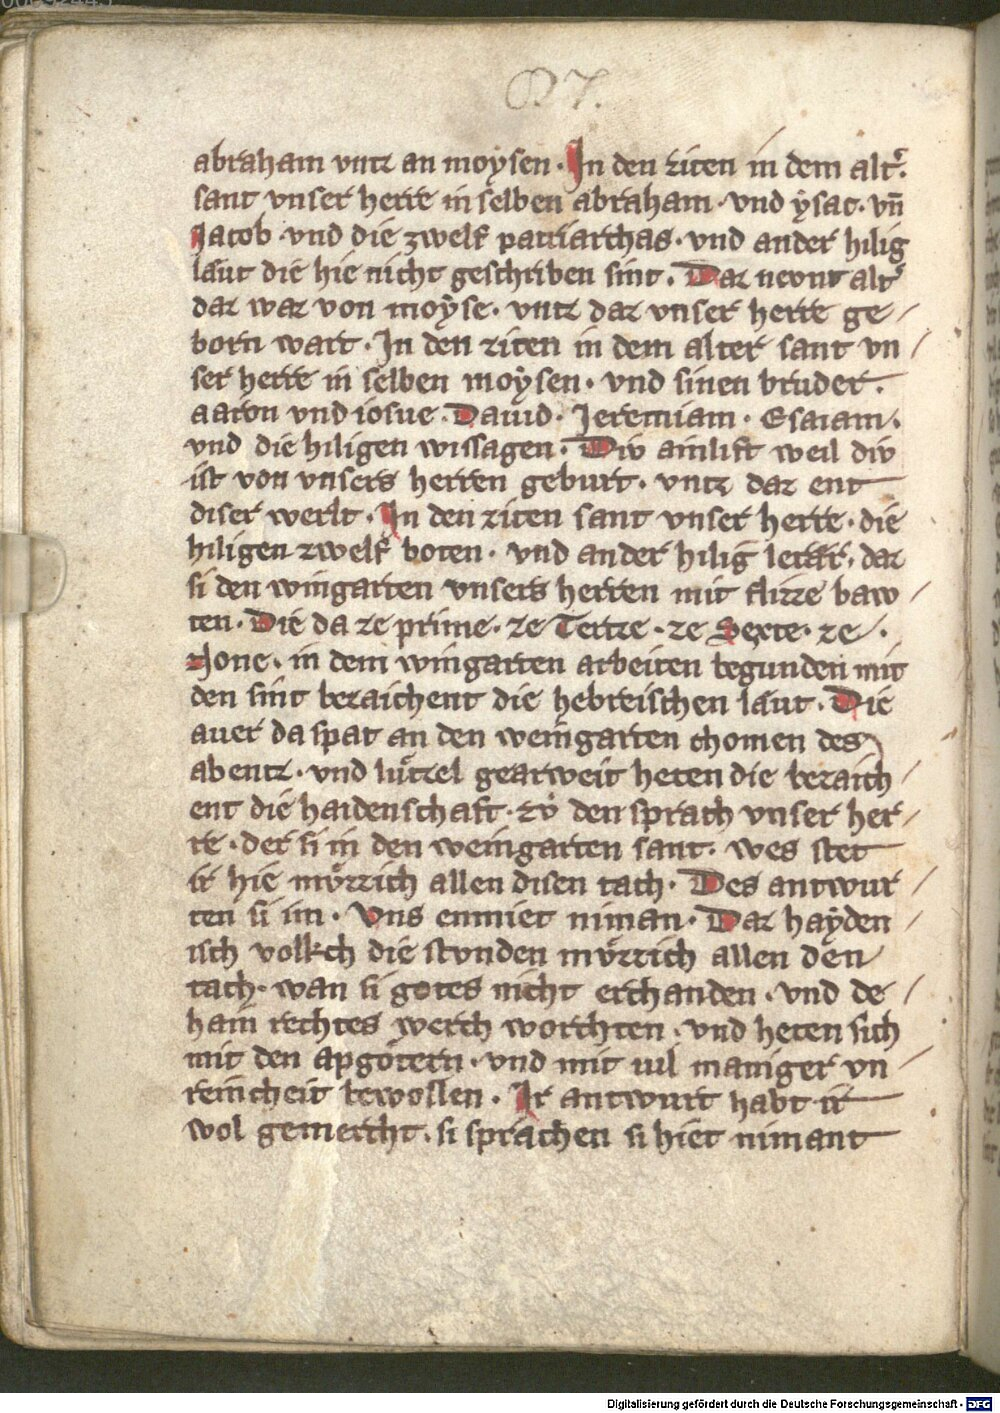 abraham vntz an moysen · In den ziten in dem alt͛.
sant vnser herre in selben abraham · vnd ẏsac · vn̄
Jacob · vnd die zwelf patriarchas · vnd ander hilig
läut die hie nicht geschriben sint · Daz alt͛
daz waz von moẏse · vntz daz vnser herre ge /
born wart · In den ziten in dem alter sant vn /
ser herre in selben moẏsen · vnd sinen bruder ·
aaron vnd iosue · Dauid · Jeremiam · Esaiam ·
vnd die hiligen wissagen · Div ainlift weil div
ist von vnsers herren geburt · vntz daz ent
diser werlt · In den ziten sant vnser herre · die
hiligen zwelf boten · vnd ander hilig lerær · daz
si den wingarten vnsers herren mit flizze baw /
ten · Die da ze prime · ze Tertze · ze Sexte · ze ·
None · in dem wingarten arbeiten begunden mit
den sint bezaichent die hebreischen läut · Die
auer da spat an den weingarten chomen des
abentz · vnd lützel gearweit heten die bezaich /
ent die haidenschaft · zv̊ den sprach vnser her /
re · der si in den weingarten sant · wes stet
ir hie mv̊zzich allen disen tach · Des antwur /
ten si im · Vns enmiet niman · Daz haẏden /
isch volkch die stvnden mv̊zzich allen den
tach · wan si gotes nicht erchanden · vnd de /
hain rechtes werch worchten · vnd heten sich
mit den apgötern · vnd mit uil maniger vn /
reincheit bewollen · Ir antwurt habt ir
wol gemercht · si sprachen si hiet nimant
Digitalisierung gefördert durch die Deutsche Forschungsgemeinschaft - DFG